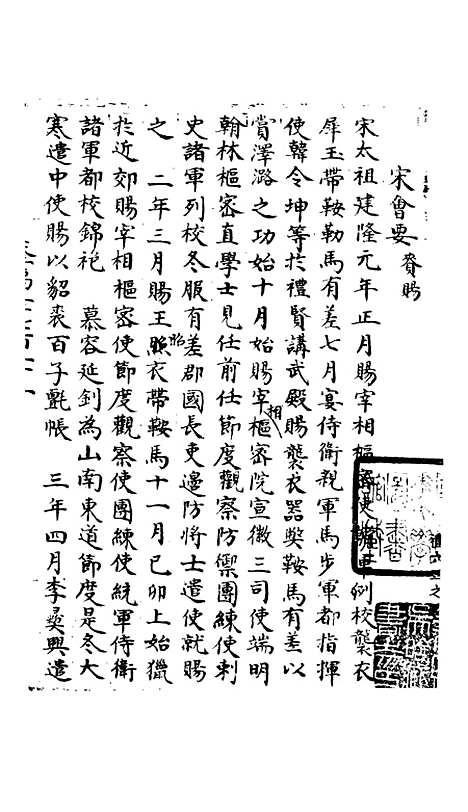 宋會要 賚賜
宋太祖建隆元年正月賜宰相樞密使諸軍列校襲衣
犀玉帶鞍勒馬有差七月宴侍衛親軍馬步軍都指揮
使韓令坤等扵禮賢講武殿賜襲衣器獘鞍馬有差以
賞澤潞之功始十月始賜宰相樞密院宣徽三司使端明
翰林樞密直學士見任前任節度觀察防禦團練使刺
史諸軍列校冬服有差郡國長吏邊防將士遣使就賜
之 二年三月賜王昭衣帶鞍馬十一月己卯上始獵
扵近郊賜宰相樞密使節度觀察使團練使統軍侍衛
諸軍都校錦袍 慕容延釗為山南東道節度是冬大
寒遣中使賜以貂裘百子氈帳 三年四月李彝興遣